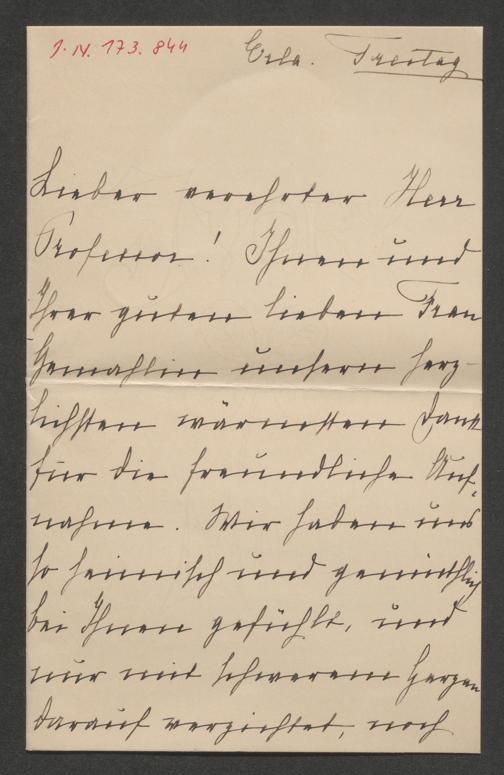 J. N. 173.844
Erla. Freitag
Lieber verehrter Herr
Professor! Ihnen und
Ihrer guten lieben Frau
Gemahlin unsern herz-
lichsten wärmsten Dank
für die freundliche Auf-
nahme. Wir haben uns
so heimisch und gemüthlich
bei Ihnen gefühlt, und
nur mit schwerem Herzen
darauf verzichtet, noch